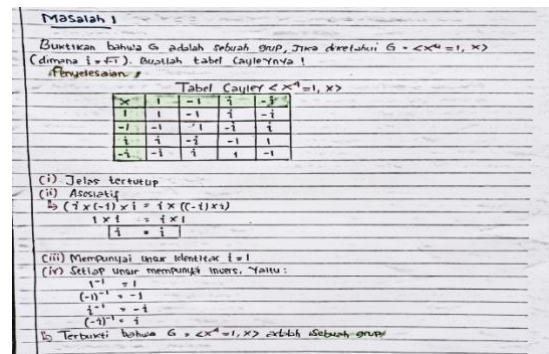 Masalah 1
Buktikan bahwa G adalah sebuah grup, Jika diketahui G = <x⁴ = 1, ×>
(dimana i = √-1). Buatlah tabel Cayleynya !
Penyelesaian :
Tabel Cayley <x⁴ = 1, ×>
× 1 -1 i -i
1 1 -1 i -i
-1 -1 1 -i i
i i -i -1 1
-i -i i 1 -1
(i) Jelas tertutup
(ii) Asosiatif
↳ (i × (-i) × i = i × ((-i) × i)
1 × i = i × 1
i = i
(iii) Mempunyai unsur identitas i = 1
(iv) Setiap unsur mempunyai invers, Yaitu :
1⁻¹ = 1
(-1)⁻¹ = -1
i⁻¹ = -i
(-i)⁻¹ = i
↳ Terbukti bahwa G = <x⁴ = 1, ×> adalah sebuah grup